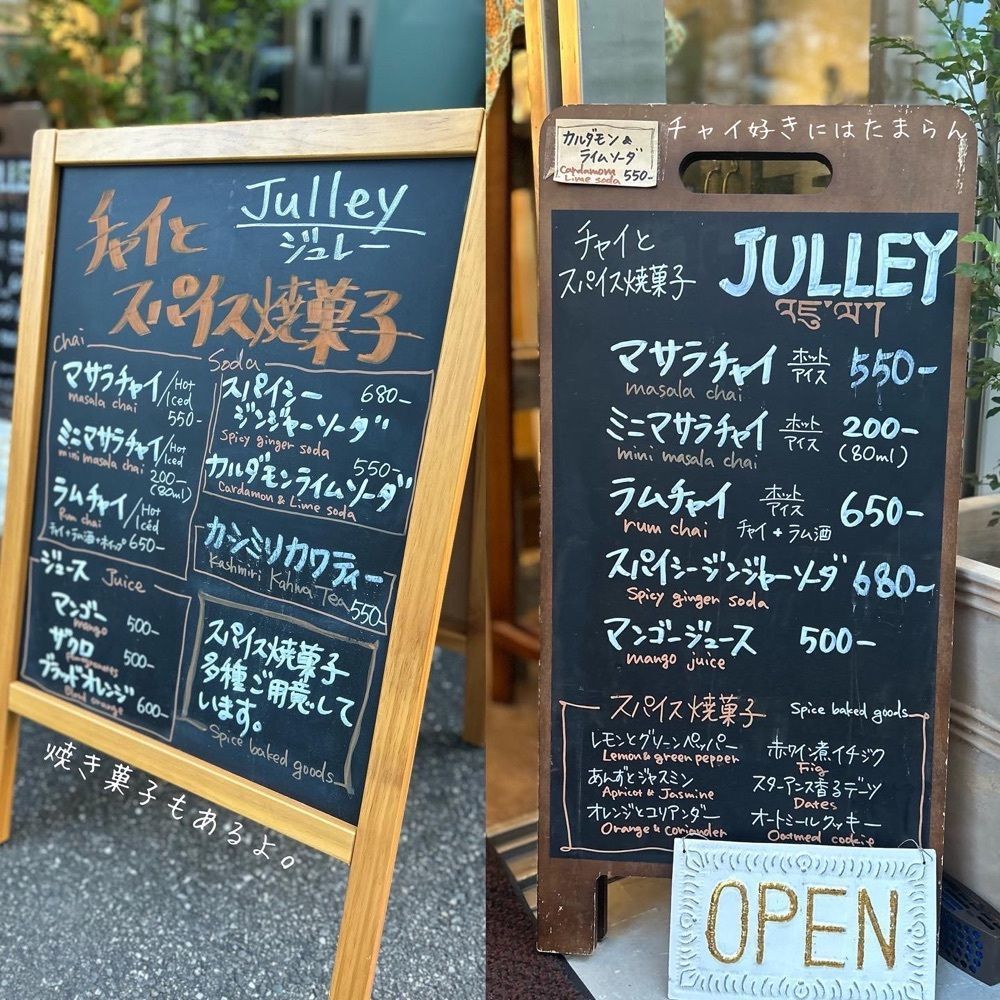 Julley
ジュレー
チャイと
スパイス焼菓子
Chai
マサラチャイ/Hot
Iced
masala chai
550-
ミニマサラチャイ/Hot
Iced
mini masala chai
200-
(80ml)
ラムチャイ/Hot
Iced
Rum chai
チャイ+ラム酒+ホイップ 650-
Soda
スパイシー 680-
ジンジャーソーダ
Spicy ginger soda
550-
カルダモンライムソーダ
Cardamon & Lime soda
カシミリカワティー
Kashmiri Kahwa Tea
550-
ジュース Juice
マンゴー 500-
mango
ザクロ 500-
ブラッドオレンジ
Blood orange 600-
スパイス焼菓子
多種ご用意して
います。
Spice baked goods
焼き菓子もあるよ。
チャイ好きにはたまらん
カルダモン&
ライムソーダ
Cardamom
Lime soda 550-
チャイと
スパイス焼菓子
JULLEY
マサラチャイ ホット
アイス 550-
masala chai
ミニマサラチャイ ホット
アイス 200-
mini masala chai (80ml)
ラムチャイ ホット
アイス 650-
rum chai チャイ+ラム酒
スパイシージンジャーソーダ 680-
Spicy ginger soda
マンゴージュース 500-
mango juice
スパイス焼菓子 Spice baked goods
レモンとグリーンペッパー
Lemon & green pepper
あんずとジャスミン
Apricot & Jasmine
オレンジとコリアンダー
Orange & coriander
ホワイン煮イチジク
Fig
スターアニス香るデーツ
Dates
オートミールクッキー
Oatmeal cookie
OPEN